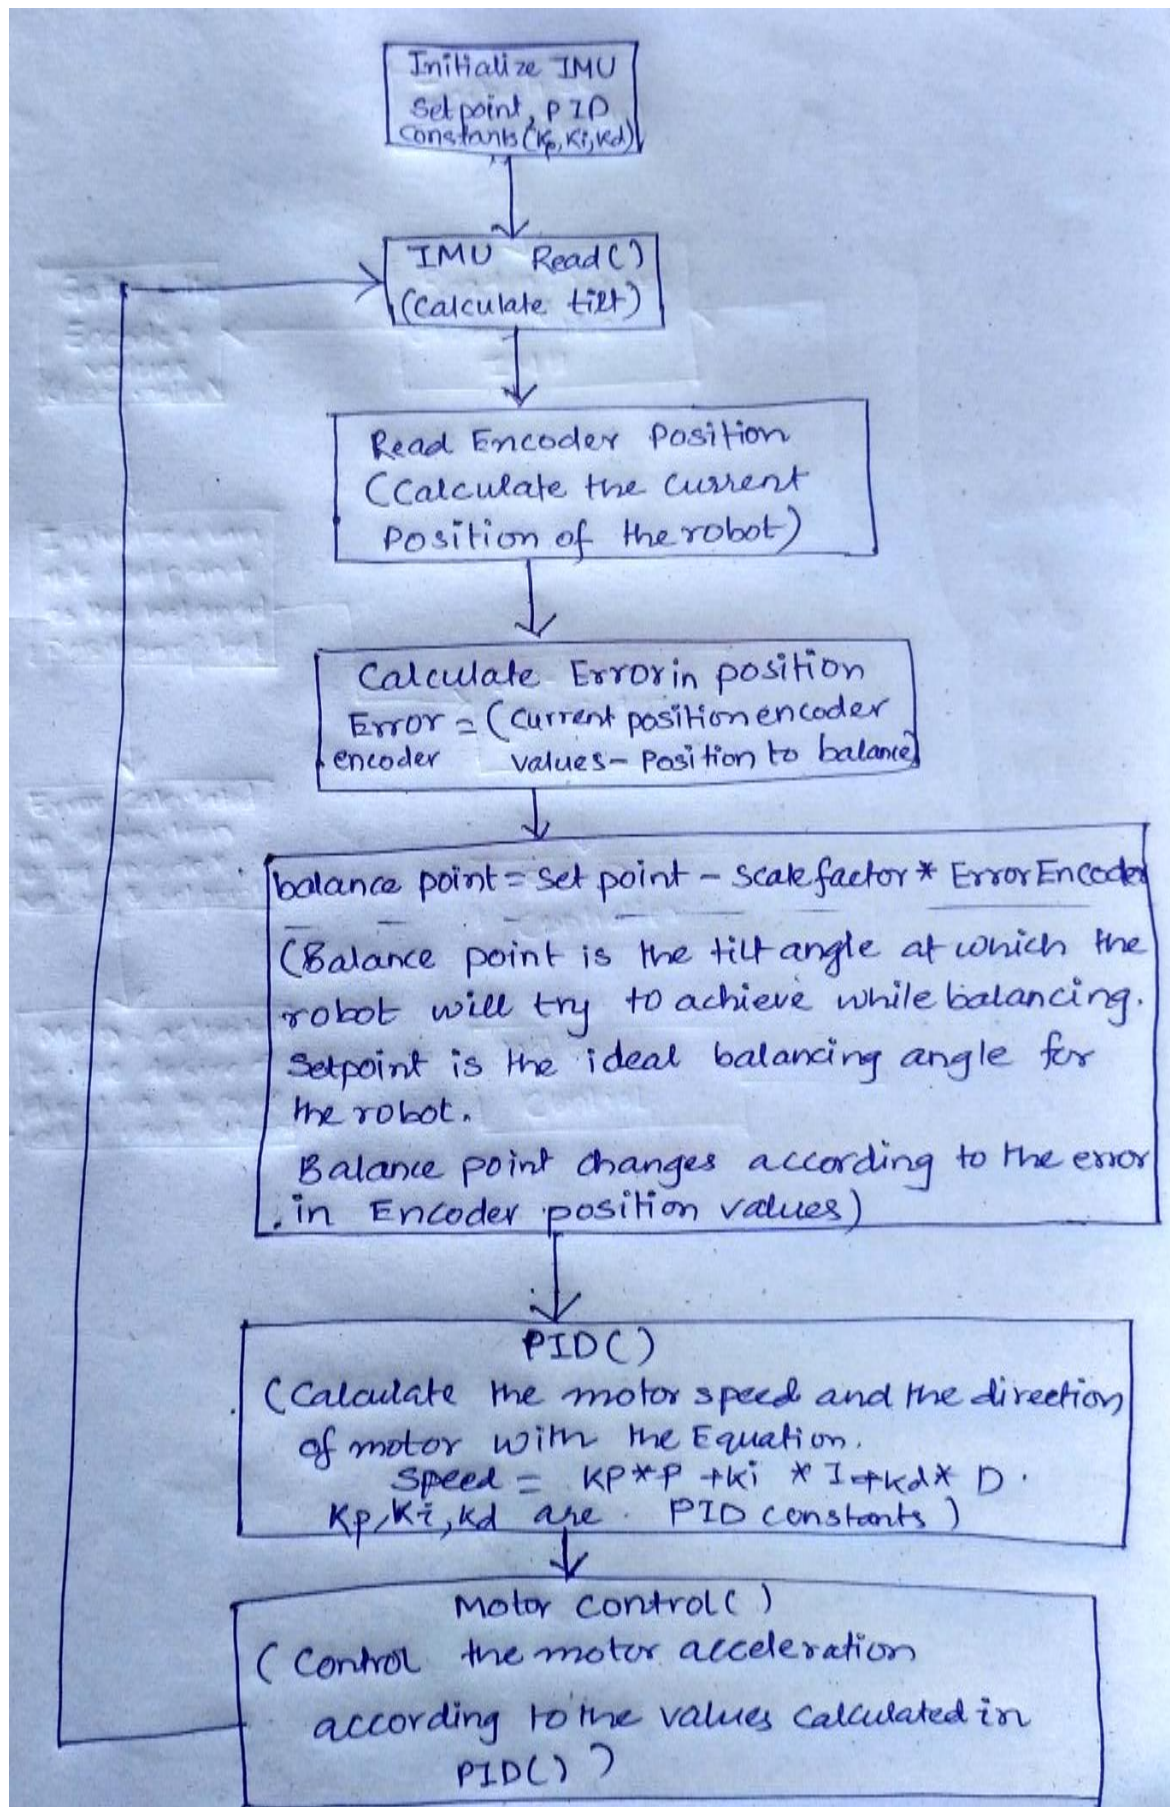 Initialize IMU
Setpoint, PID
Constants (Kp, Ki, Kd)
IMU Read()
(Calculate tilt)
Read Encoder Position
(Calculate the current
Position of the robot)
Calculate Error in position
Error = (Current position encoder
encoder values - Position to balance)
balance point = set point - scale factor * Error Encoder
(Balance point is the tilt angle at which the
robot will try to achieve while balancing.
Setpoint is the ideal balancing angle for
the robot.
Balance point changes according to the error
in Encoder position values)
PID()
(Calculate the motor speed and the direction
of motor with the Equation.
Speed = KP*P + Ki * I + Kd * D.
Kp, Ki, Kd are PID constants)
Motor control()
(Control the motor acceleration
according to the values calculated in
PID())